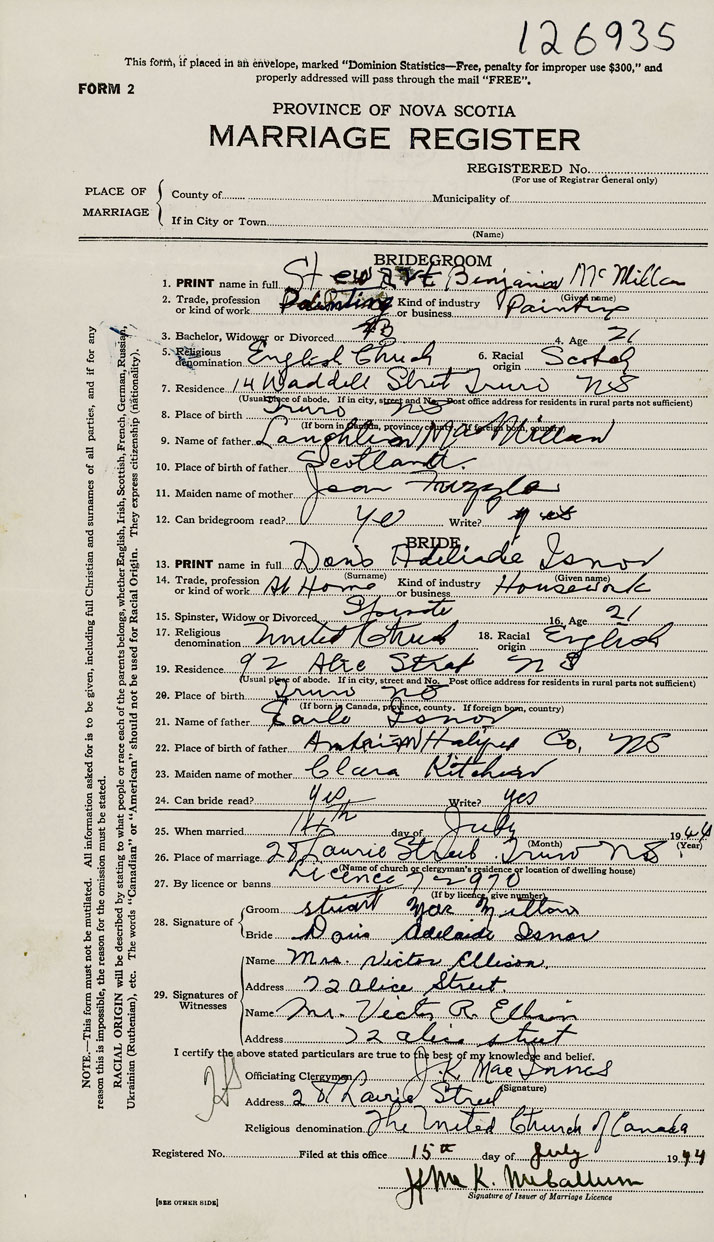 126935
This form, if placed in an envelope, marked "Dominion Statistics—Free, penalty for improper use $300," and
properly addressed will pass through the mail "FREE".
FORM 2
PROVINCE OF NOVA SCOTIA
MARRIAGE REGISTER
REGISTERED No.
(For use of Registrar General only)
PLACE OF MARRIAGE
County of Municipality of
If in City or Town
(Name)
BRIDEGROOM
1. PRINT name in full Stewart Benjamin McMillan
(Given name)
2. Trade, profession or kind of work Painting Kind of industry or business Painting
3. Bachelor, Widower or Divorced B 4. Age 21
5. Religious denomination English Church 6. Racial origin Scotch
7. Residence 14 Waddell Street Truro NS
(Usual place of abode. If in city, street and No. Post office address for residents in rural parts not sufficient)
8. Place of birth Truro NS
(If born in Canada, province, county. If foreign born, country)
9. Name of father Laughlin MacMillan
10. Place of birth of father Scotland.
11. Maiden name of mother Jean
12. Can bridegroom read? Yes Write? yes
BRIDE
13. PRINT name in full Doris Adeliade Isnor
(Surname) (Given name)
14. Trade, profession or kind of work At Home Kind of industry or business Housework
15. Spinster, Widow or Divorced 16. Age 21
17. Religious denomination United Church 18. Racial origin English
19. Residence 92 Alice Street NS
(Usual place of abode. If in city, street and No. Post office address for residents in rural parts not sufficient)
20. Place of birth Truro NS
(If born in Canada, province, county. If foreign born, country)
21. Name of father Earle Isnor
22. Place of birth of father Halifax Co, NS
23. Maiden name of mother Clara Kitchen
24. Can bride read? Yes Write? yes
25. When married 14th day of July 1944
(Month) (Year)
26. Place of marriage 28 Laurie Street Truro NS
(Name of church or clergyman's residence or location of dwelling house)
27. By licence or banns Licence 72970
(If by licence, give number)
28. Signature of
Groom Stuart Mac Millan
Bride Doris Adelaide Isnor
29. Signatures of Witnesses
Name Mrs. Victor Ellison.
Address 72 Alice Street
Name Mr. Victor R. Ellison
Address 72 alice street
I certify the above stated particulars are true to the best of my knowledge and belief.
Officiating Clergyman J.K. MacInnes
(Signature)
Address 28 Laurie Street
Religious denomination The United Church of Canada
Registered No. Filed at this office 15th day of July 1944
K. McCallum
Signature of Issuer of Marriage Licence
[SEE OTHER SIDE]
NOTE.—This form must not be mutilated. All information asked for is to be given, including full Christian and surnames of all parties, and if for any
reason this is impossible, the reason for the omission must be stated.
RACIAL ORIGIN will be described by stating to what people or race each of the parents belongs, whether English, Irish, Scottish, French, German, Russian,
Ukrainian (Ruthenian), etc. The words "Canadian" or "American" should not be used for Racial Origin. They express citizenship (nationality).